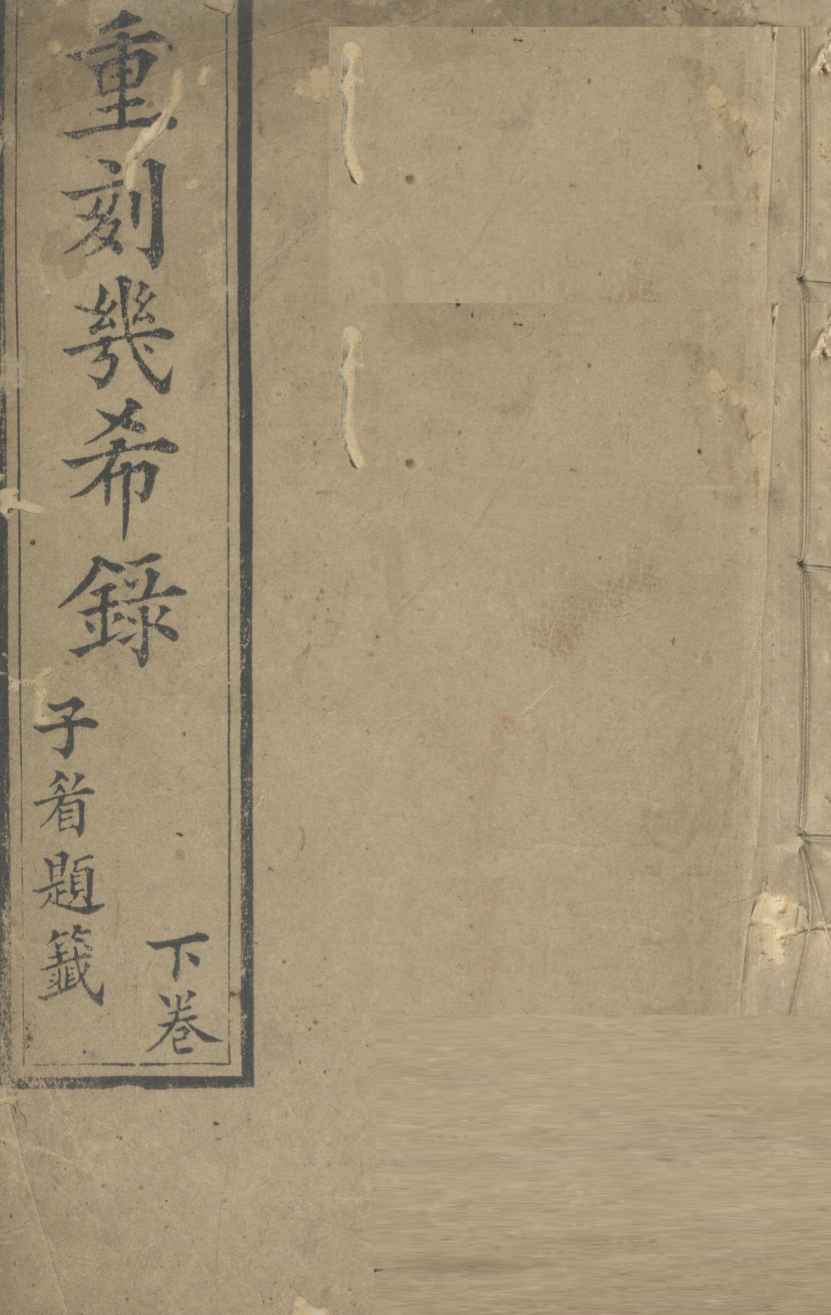 重刻幾希錄
下卷
子眘題籤